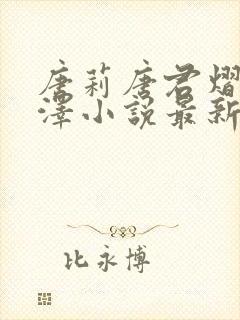 唐莉唐君熠
泽小说最新
比永博